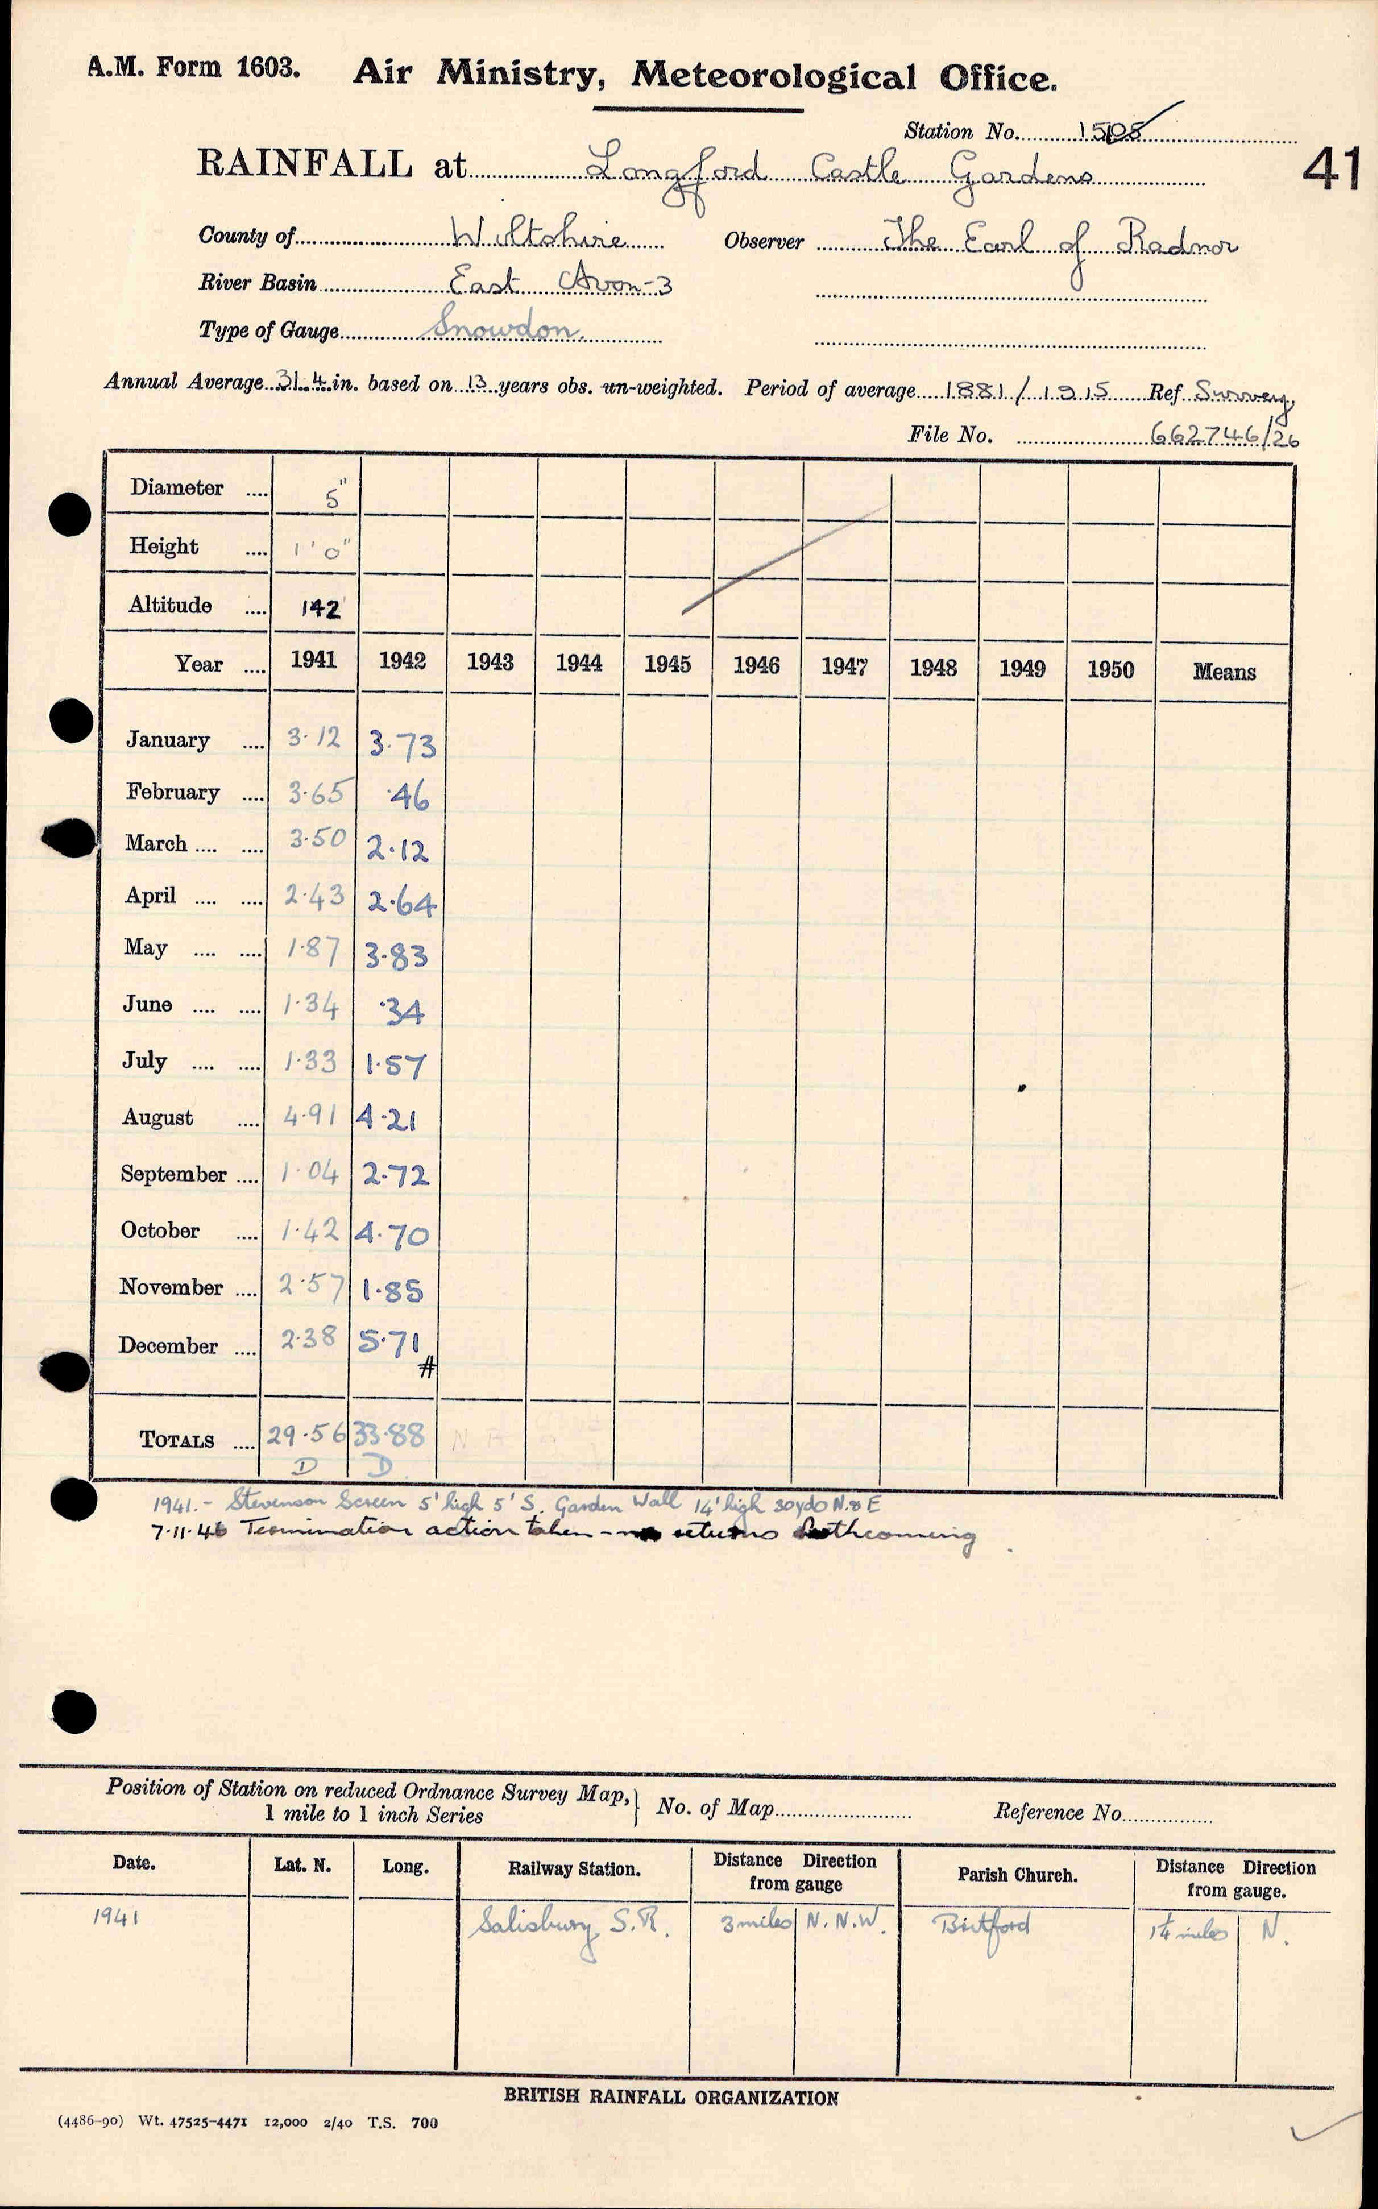 A.M. Form 1603. Air Ministry, Meteorological Office.
Station No. 1505
41
RAINFALL at Longford Castle Gardens
County of Wiltshire Observer The Earl of Radnor
River Basin East Avon-3
Type of Gauge Snowdon.
Annual Average 31.4 in. based on 13 years obs. un-weighted. Period of average 1881/1915 Ref Survey,
File No. 662746/26
Diameter .... 5"
Height .... 1'0"
Altitude .... 142
Year .... 1941 1942 1943 1944 1945 1946 1947 1948 1949 1950 Means
January .... 3.12 3.73
February .... 3.65 .46
March .... .... 3.50 2.12
April .... .... 2.43 2.64
May .... .... 1.87 3.83
June .... .... 1.34 .34
July .... .... 1.33 1.57
August .... 4.91 4.21
September .... 1.04 2.72
October .... 1.42 4.70
November .... 2.57 1.85
December .... 2.38 5.71
#
TOTALS .... 29.56 33.88
D D
1941. - Stevenson Screen 5' high 5' S. Garden Wall 14' high 30yds N. & E
7.11.46 Termination action taken - no returns forthcoming
Position of Station on reduced Ordnance Survey Map,
1 mile to 1 inch Series
No. of Map
Reference No.
Date. Lat. N. Long. Railway Station. Distance Direction from gauge Parish Church. Distance Direction from gauge.
1941 Salisbury S.R. 3 miles N.N.W. Britford 1¼ miles N.
BRITISH RAINFALL ORGANIZATION
(4486-90) Wt. 47525-4471 12,000 2/40 T.S. 700